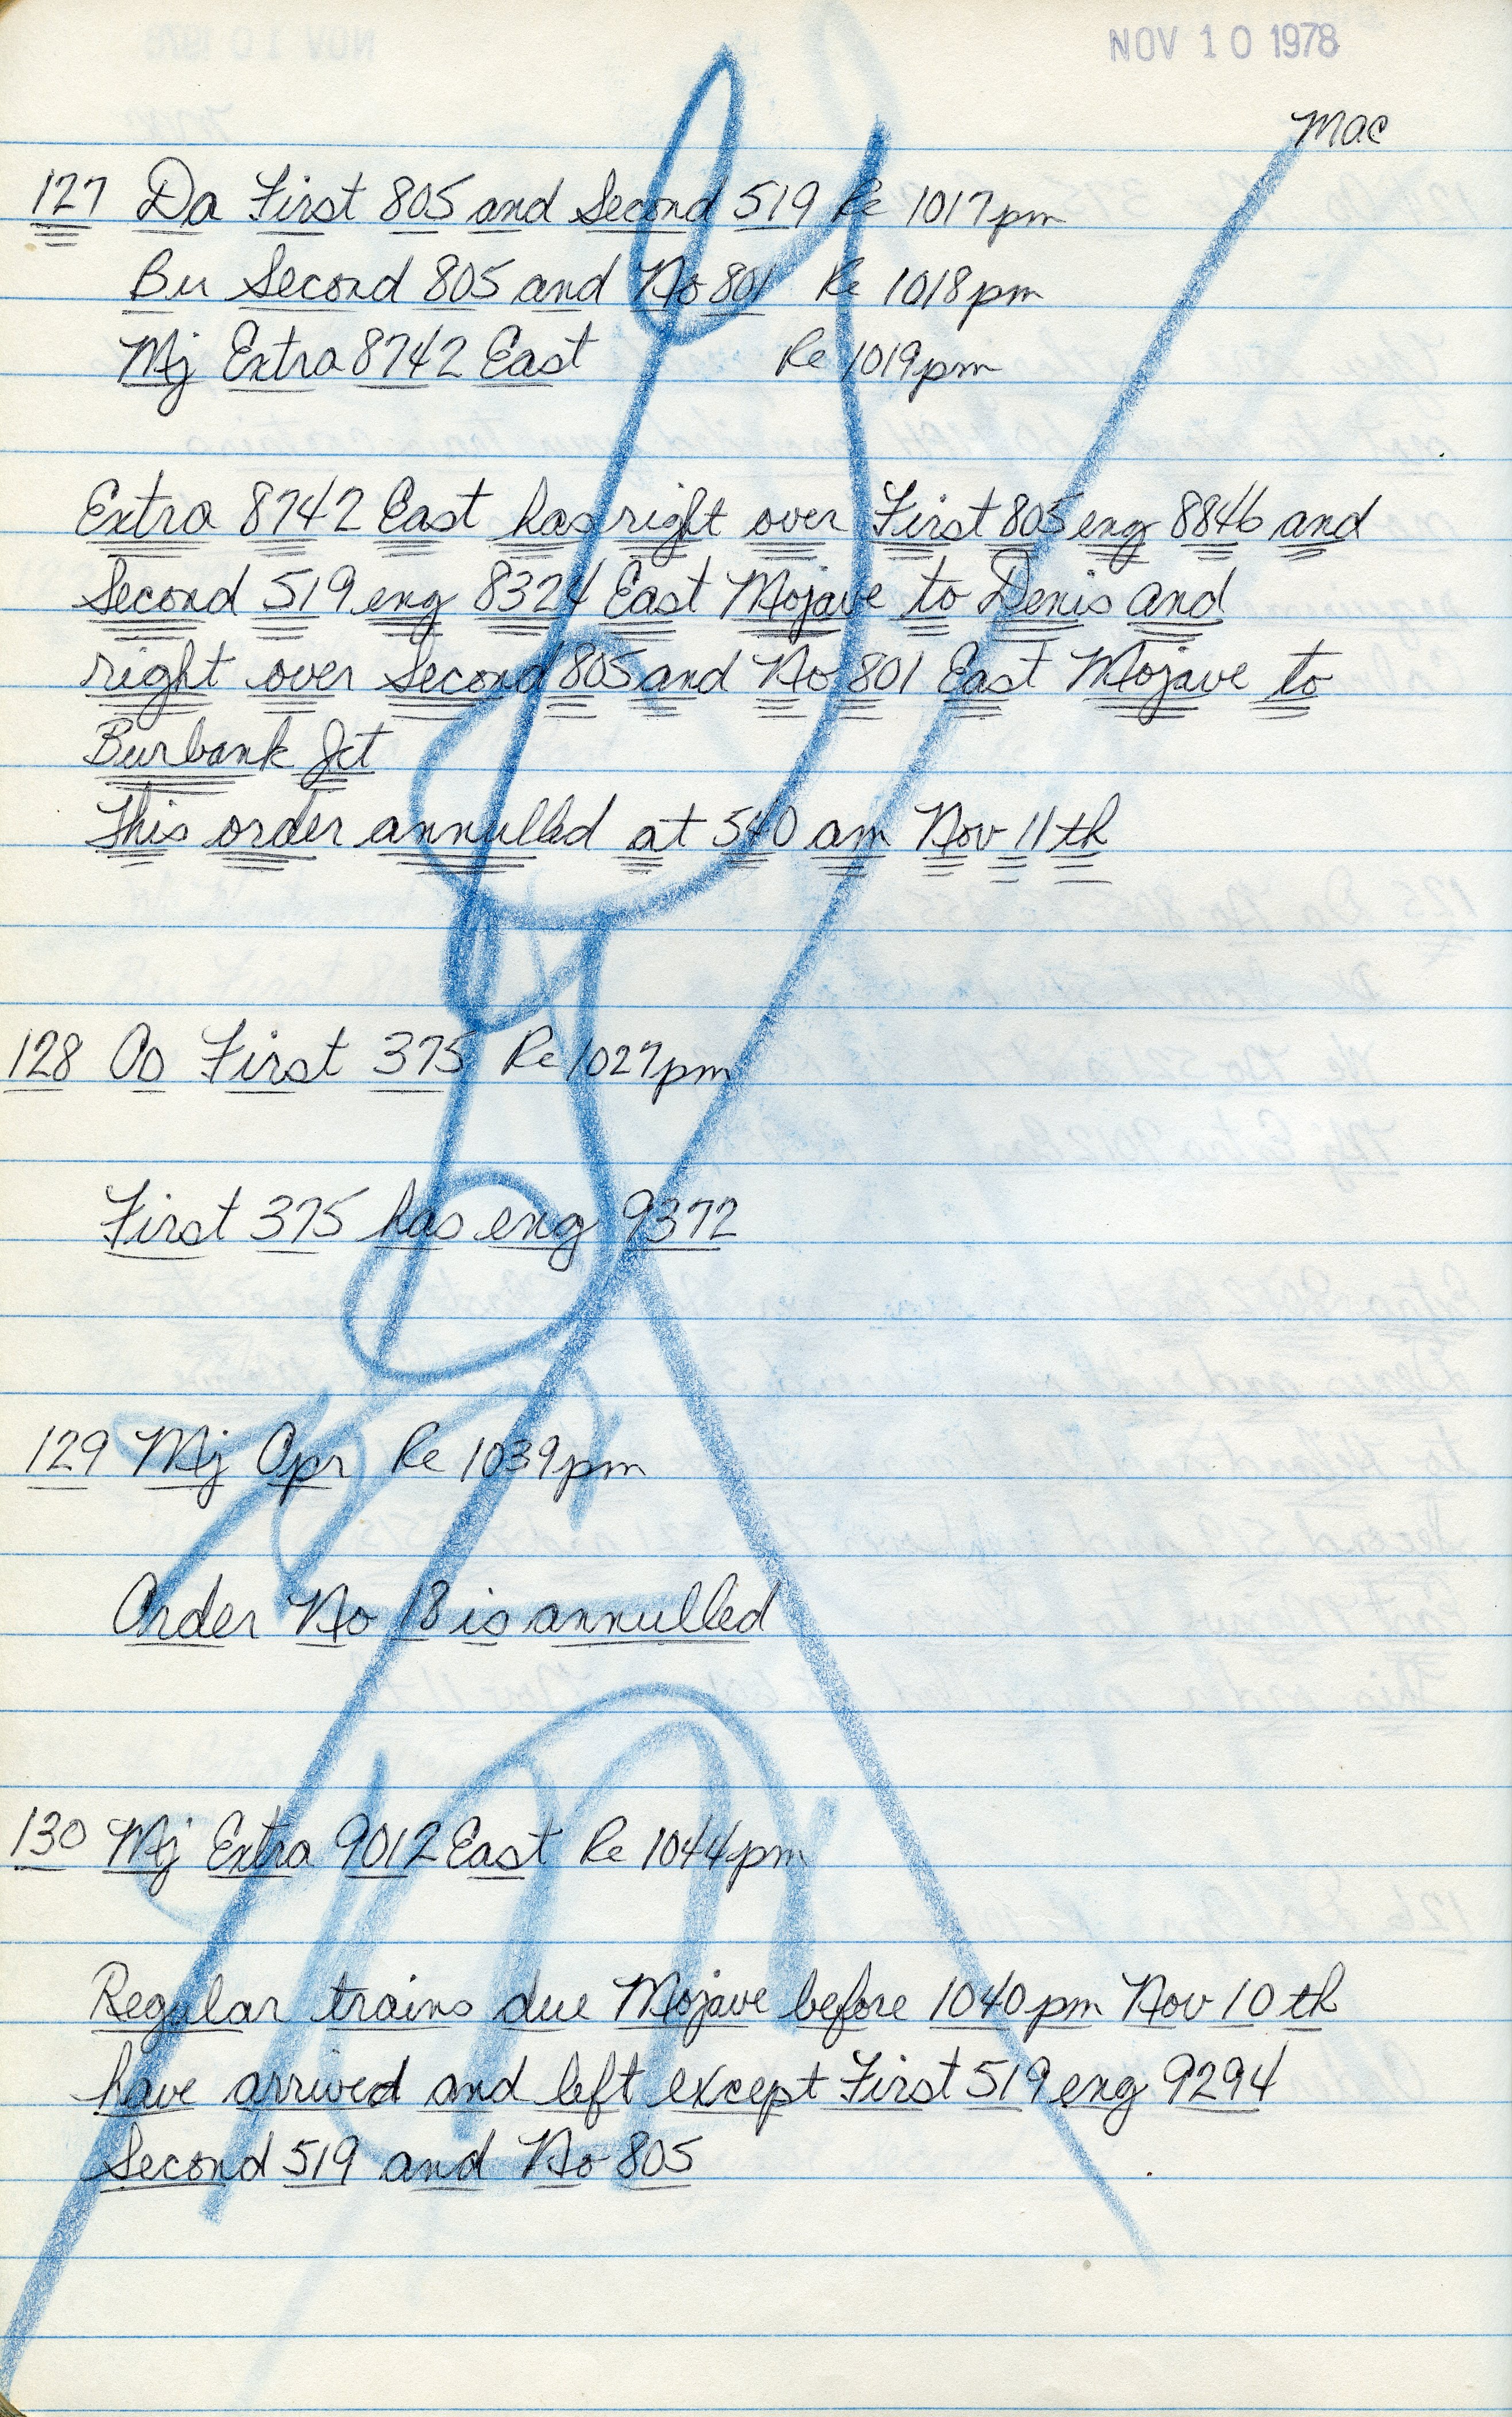 NOV 10 1978
Mac
127 Da First 805 and Second 519 Re 1017pm
Bu Second 805 and No 801 Re 1018pm
Mj Extra 8742 East Re 1019pm
Extra 8742 East has right over First 805 eng 8846 and
Second 519 eng 8324 East Mojave to Denis and
right over Second 805 and No 801 East Mojave to
Burbank Jct
This order annulled at 540 am Nov 11th
128 Oo First 375 Re 1027pm
First 375 has eng 9372
129 Mj Opr Re 1039pm
Order No 18 is annulled
130 Mj Extra 9012 East Re 1044pm
Regular trains due Mojave before 1040pm Nov 10th
have arrived and left except First 519 eng 9294
Second 519 and No 805